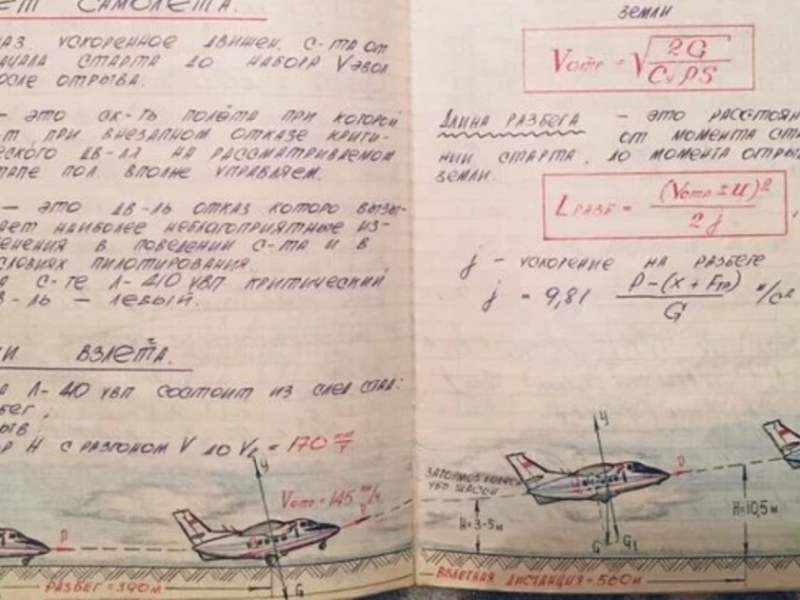 ЕТ САМОЛЕТА.
АЗ. УСКОРЕННОЕ ДВИЖЕН. С-ТА ОТ
АЧАЛА СТАРТА ДО НАБОРА V ЭВОЛ.
ОСЛЕ ОТРЫВА.
— ЭТО СК-ТЬ ПОЛЁТА ПРИ КОТОРОЙ
Т ПРИ ВНЕЗАПНОМ ОТКАЗЕ КРИТИ-
ЕСКОГО ДВ-ЛЯ НА РАССМАТРИВАЕМОМ
ТАПЕ ПОЛ. ВПОЛНЕ УПРАВЛЯЕМ.
— ЭТО ДВ-ЛЬ ОТКАЗ КОТОРО ВЫЗЫ-
АЕТ НАИБОЛЕЕ НЕБЛАГОПРИЯТНЫЕ ИЗ-
ЕНЕНИЯ В ПОВЕДЕНИИ С-ТА И В
СЛОВИЯХ ПИЛОТИРОВАНИЯ.
А С-ТЕ Л-410 УВП КРИТИЧЕСКИЙ
В-ЛЬ — ЛЕВЫЙ.
ИИ ВЗЛЕТА.
А Л-410 УВП СОСТОИТ ИЗ СЛЕД. СТАД:
БЕГ,
ЫВ
ОР Н С РАЗГОНОМ V ДО V₂ = 170 км/ч
Y
Vотр = 145 км/ч
P
P
G
РАЗБЕГ = 390 М
ЗЕМЛИ
Vотр = √(2G / CyρS)
ДЛИНА РАЗБЕГА — ЭТО РАССТОЯН
ОТ МОМЕНТА СТА
НИИ СТАРТА, ДО МОМЕНТА ОТРЫВ
ЗЕМЛИ.
L РАЗБ = (Vотр ± U)² / 2j
j — УСКОРЕНИЕ НА РАЗБЕГЕ
j = 9,81 P-(X+Fтр) / G м/с²
Y
P
ЗАТОРМОЗ. КОЛЕСА
УБР. ШАССИ
H=3-5м
H=10,5м
G G₁
ВЗЛЕТНАЯ ДИСТАНЦИЯ = 560 М